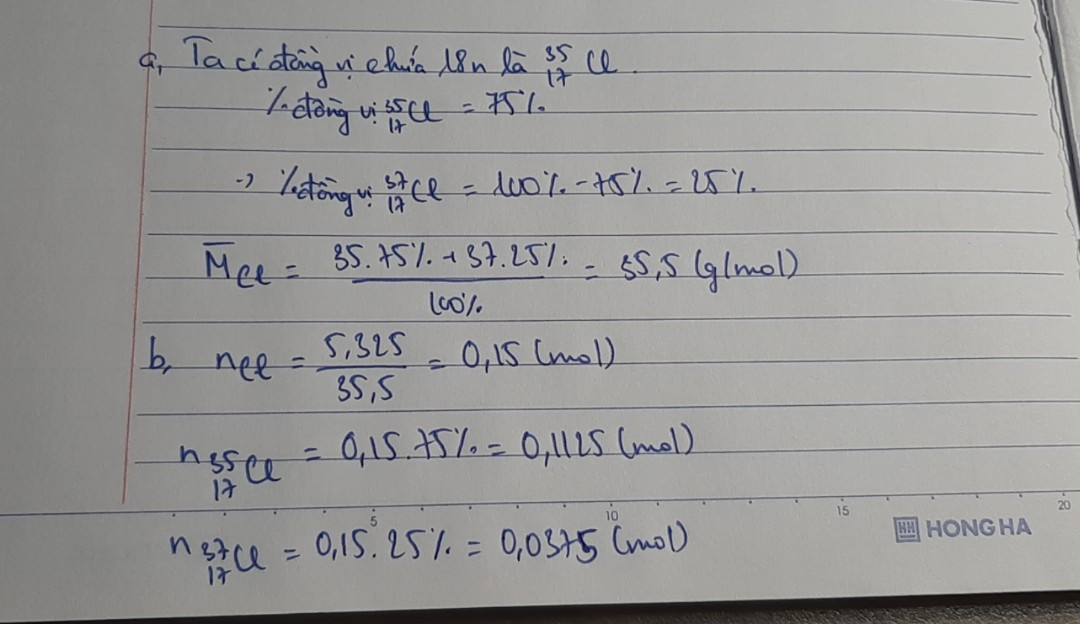 a, Ta có đồng vị chứa 18n là ³⁵₁₇Cl.
% đồng vị ³⁵₁₇Cl = 75%.
-> % đồng vị ³⁷₁₇Cl = 100% - 75% = 25%.
M̅Cl = (35.75% + 37.25%)/100% = 35,5 (g/mol)
b, nCl = 5,325/35,5 = 0,15 (mol)
n ³⁵₁₇Cl = 0,15.75% = 0,1125 (mol)
5 10 15 20
HH HONG HA
n ³⁷₁₇Cl = 0,15.25% = 0,0375 (mol)